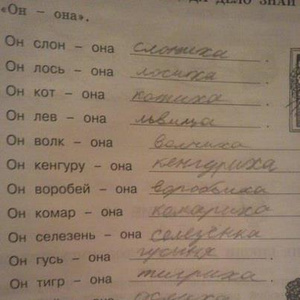 ДЕЛО ЗНАЙ
«Он – она».
Он слон – она слониха.
Он лось – она лосиха.
Он кот – она котиха.
Он лев – она львица.
Он волк – она волчиха
Он кенгуру – она кенгуриха
Он воробей – она воробьиха
Он комар – она комариха
Он селезень – она селезёнка
Он гусь – она гусина
Он тигр – она тигриха